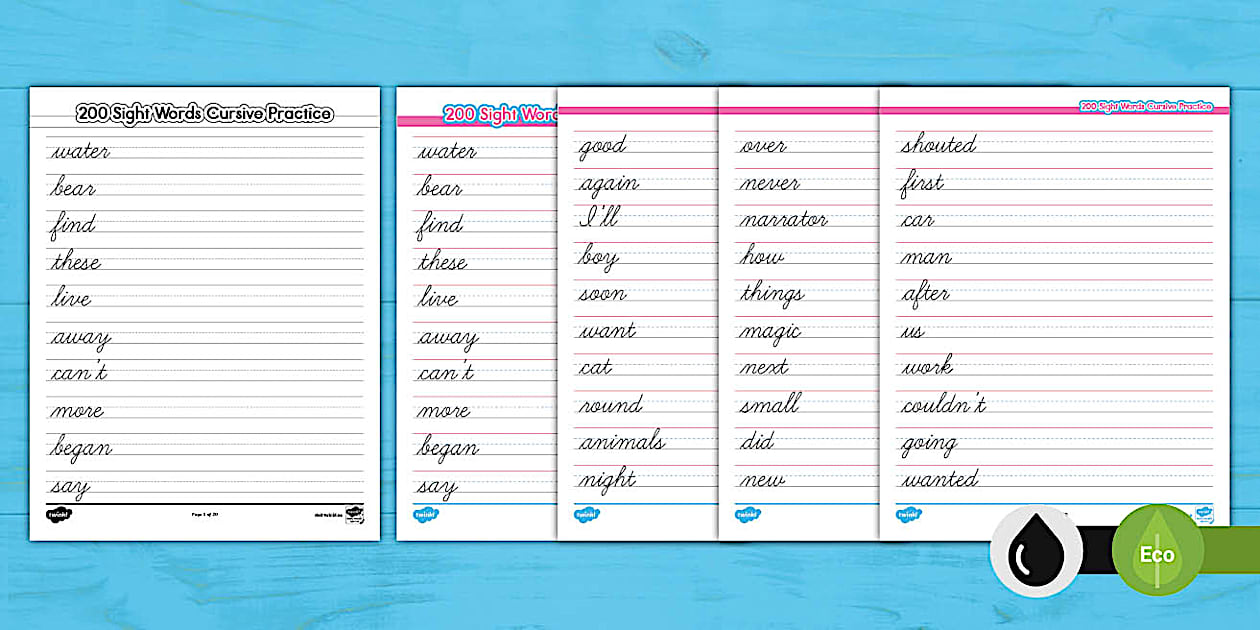 200 Sight Words Cursive Practice
water
bear
find
these
live
away
can't
more
began
say
twinkl
Page 1 of 20
200 Sight Word
water
bear
find
these
live
away
can't
more
began
say
twinkl
good
again
I'll
boy
soon
want
cat
round
animals
night
twinkl
over
never
narrator
how
things
magic
next
small
did
new
twinkl
200 Sight Words Cursive Practice
shouted
first
car
man
after
us
work
couldn't
going
wanted
twinkl
Eco